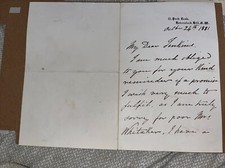 Octr 26th 1881
My Dear Jenkins,
I am much obliged
to you for your kind
reminder of a promise
I wish very much to
fulfil, as I am truly
sorry for poor Mrs
Whitaker, I have a